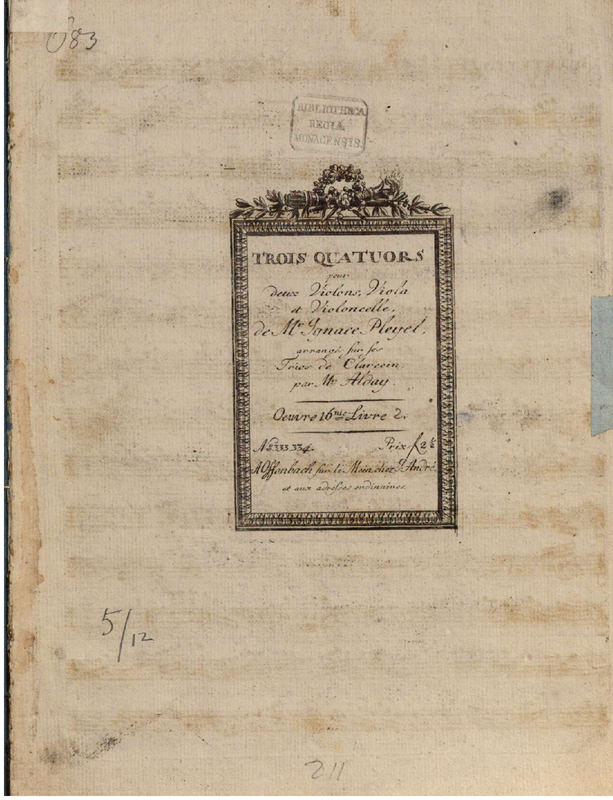 083
BIBLIOTHECA
REGIA
MONACENSIS.
TROIS QUATUORS
pour
deux Violons, Viola
et Violoncelle,
de Mr. Ignace Pleyel,
arrangé sur ses
Trios de Clavecin
par Mr. Alday.
Oeuvre 16me Livre 2.
Prix f 2½
A Offenbach sur le Mein chez J. André,
et aux adresses ordinaires.
5/12
211